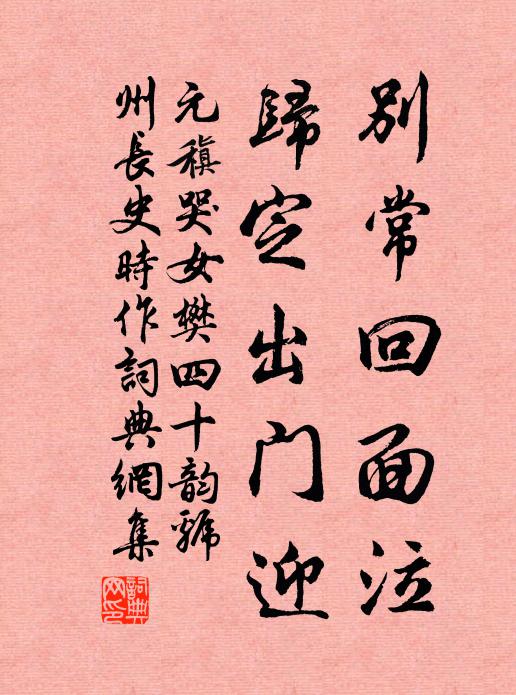 別常回面泣
歸定出門迎
元稹哭女樊四十韵虢
州長史時作詞典網集
詞典网印